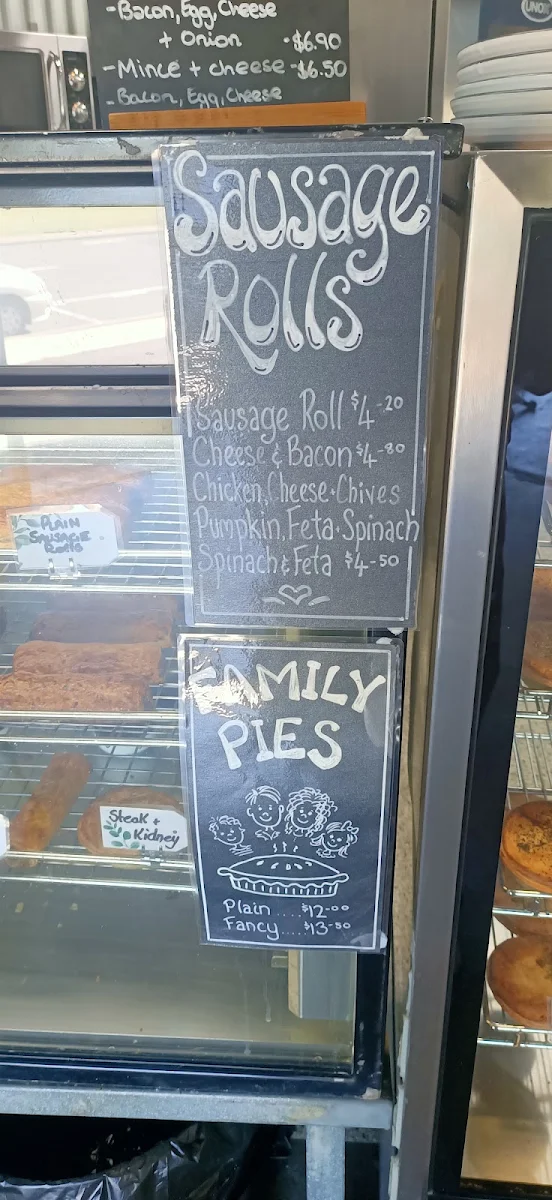 -Bacon, Egg, Cheese
+ Onion -$6.90
-Mince + cheese -$6.50
-Bacon, Egg, Cheese
UNOX
Sausage
Rolls
Sausage Roll $4-20
Cheese & Bacon $4-80
Chicken, Cheese·Chives
Pumpkin, Feta·Spinach
Spinach & Feta $4-50
PLAIN
SAUSAGE
Rolls
FAMILY
PIES
Plain....$12-00
Fancy....$13-50
Steak +
Kidney